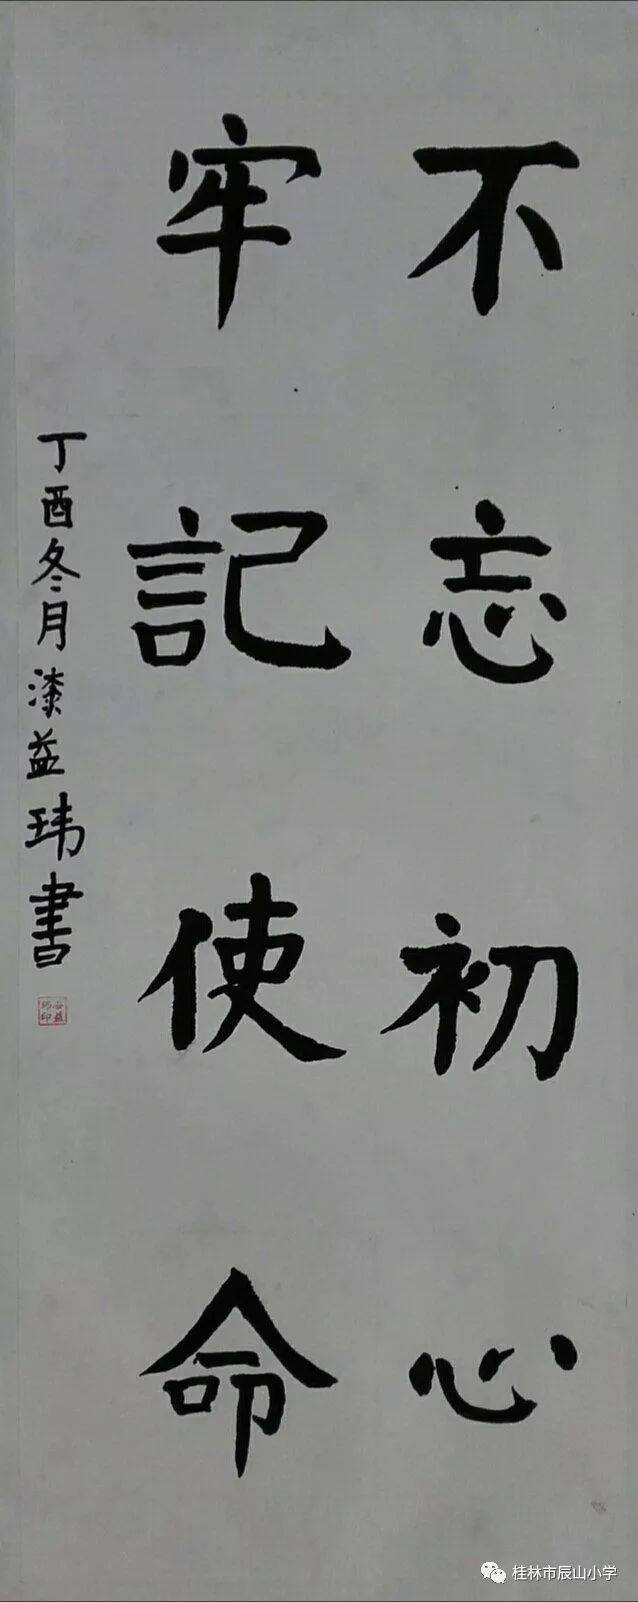 不忘初心
牢記使命
丁酉冬月漆益玮書
桂林市辰山小学